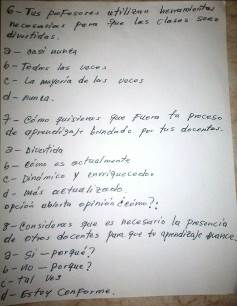 6-Tus profesores utilizan herramientas
necesarias para que las clases sean
divertidas.
a- casi nunca
b- Todas las veces.
c- La mayoria de las veces
d- nunca.
7- Cómo quisieras que fuera tu proceso
de aprendizaje brindado por tus docentes.
a- Divertida
b- Cómo es actualmente
c- Dinámico y enriquecedor
d- más actualizado.
opción abierta opinión Cómo?:
8- Consideras que es necesario la presencia
de otros docentes para que tu aprendizaje avance.
a- Si - porqué?
b- no - Porque?
c- tal vez
d- Estoy conforme.